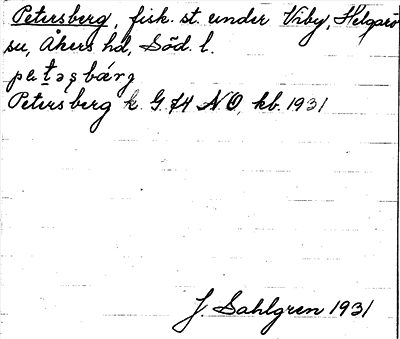 Petersberg, fisk. st. under Viby, Helgarö
su, Åkers hd, Söd. l.
Petersberg k. G 74 NO, kb. 1931
J. Sahlgren 1931